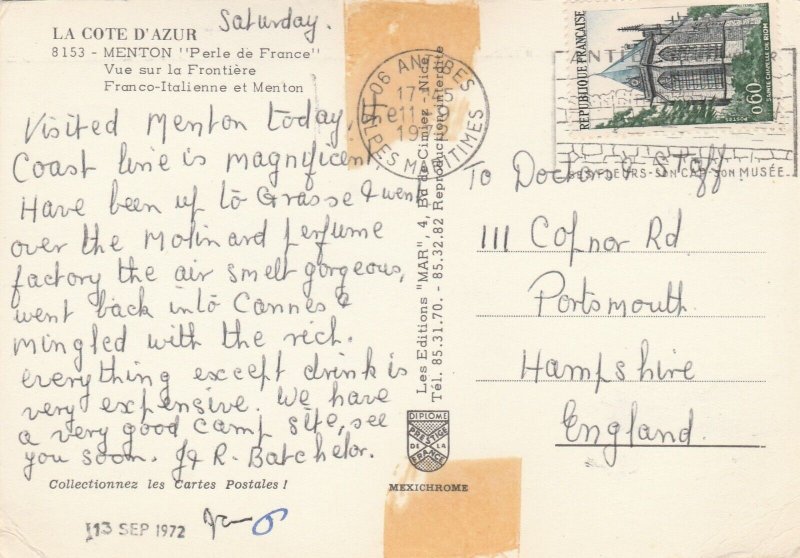 Saturday.
LA COTE D'AZUR
8153 - MENTON "Perle de France"
Vue sur la Frontière
Franco-Italienne et Menton
Visited Menton today.
Coast line is magnificent
Have been up to Grasse & went
over the Molinard perfume
factory the air smelt gorgeous,
went back into Cannes &
mingled with the rich.
everything except drink is
very expensive. We have
a very good camp site, see
you soon. J & R. Batchelor.
Collectionnez les Cartes Postales !
13 SEP 1972
Les Editions "MAR", 4, Bd de Cimiez - Nice
Tél. 85.31.70. - 85.32.82 Reproduction interdite
DIPLOME
PRESTIGE
DE LA
FRANCE
MEXICHROME
06 ANTIBES
17
11
19
ALPES MARITIMES
REPUBLIQUE FRANÇAISE
0,60
POSTES
SAINTE CHAPELLE DE RIOM
FLEURS - SON CAP - SON MUSÉE
To Doctors & Staff
111 Copnor Rd
Portsmouth
Hampshire
England.